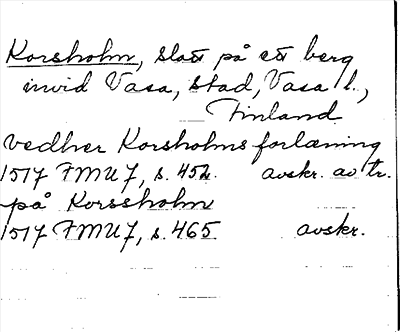 Korsholm, slott på ett berg
invid Vasa, stad, Vasa l.,
Finland
vedher Korsholms forlæning
1517 FMU 7, s. 452. avskr. av tr.
på Korssholm
1517 FMU 7, s. 465 avskr.